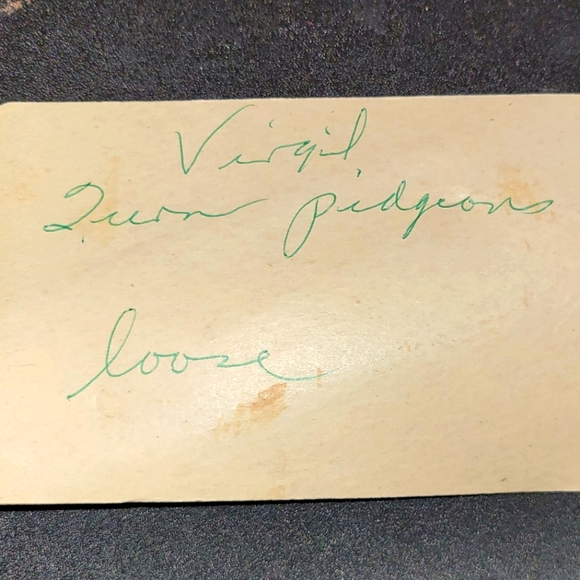 Virgil
Turn pidgeons
loose